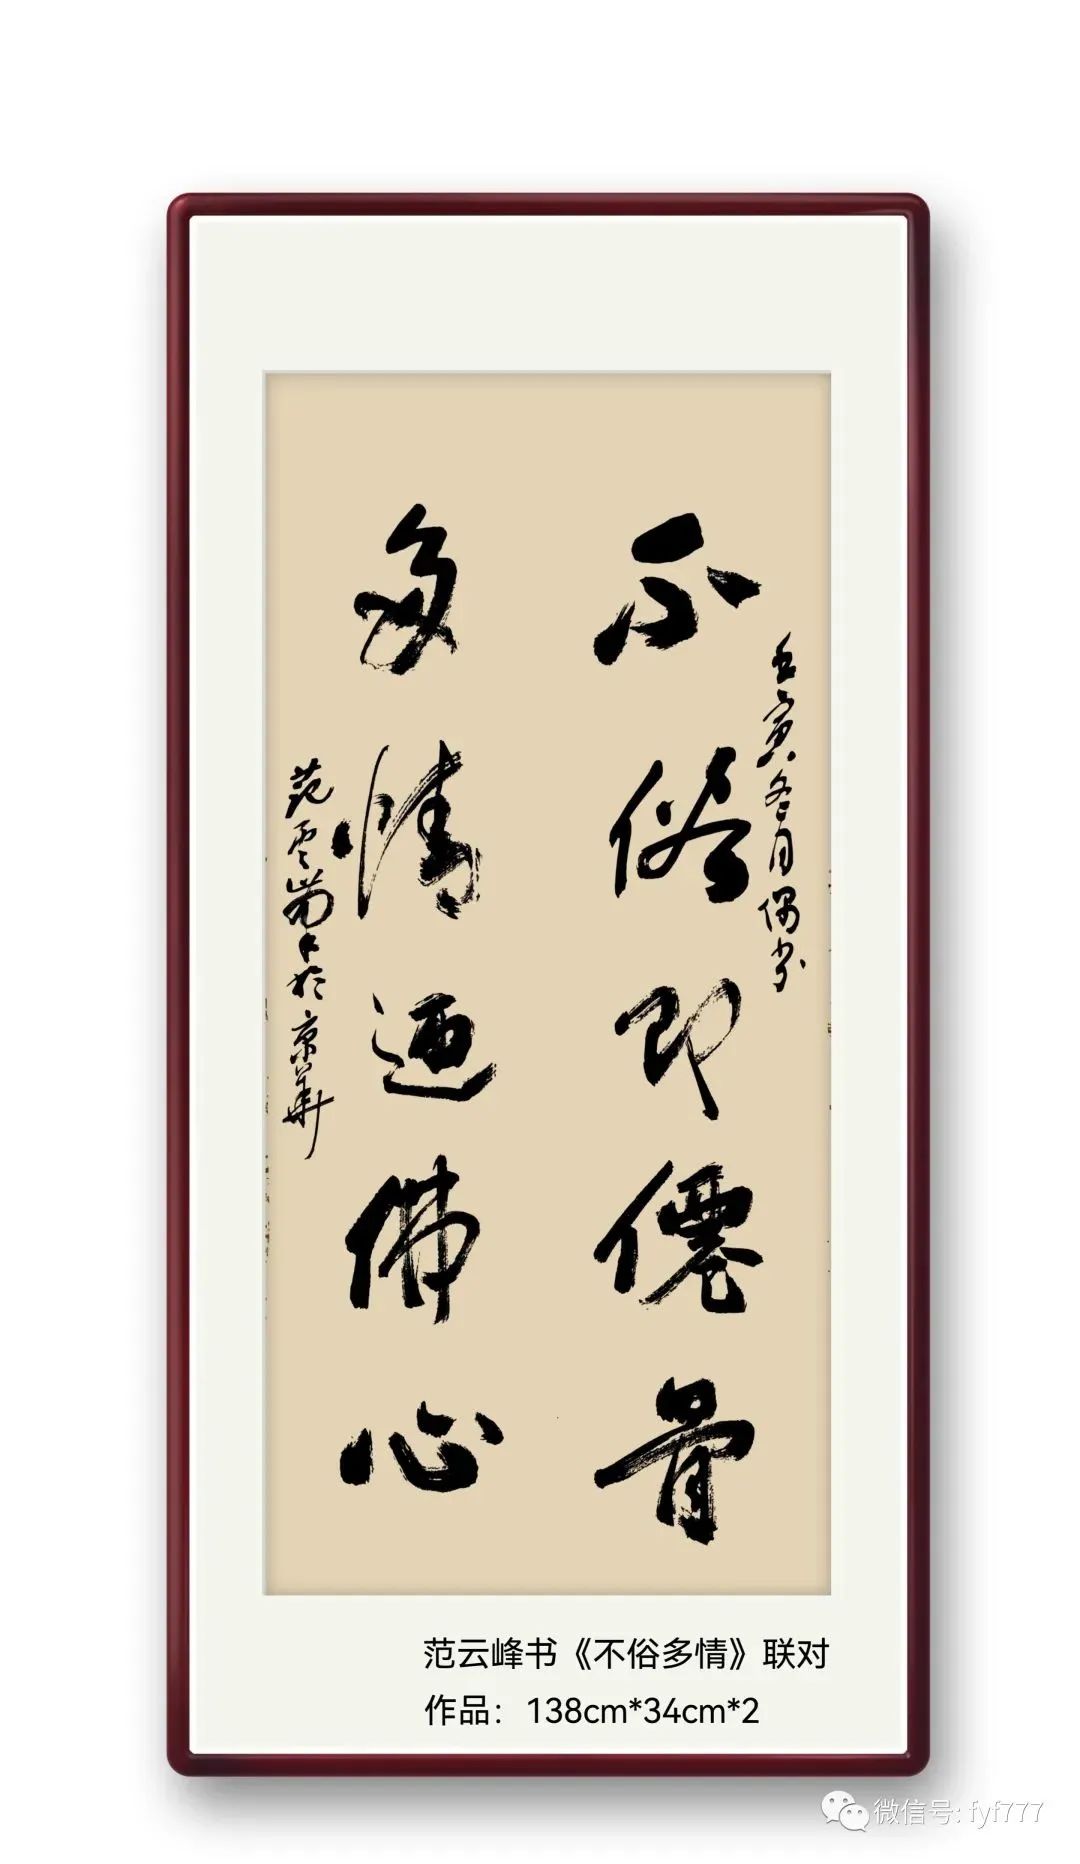 壬寅冬月偶书
不俗即僊骨
多情迺佛心
范雲峯书於京華
范云峰书《不俗多情》联对
作品：138cm*34cm*2
微信号: fyf777